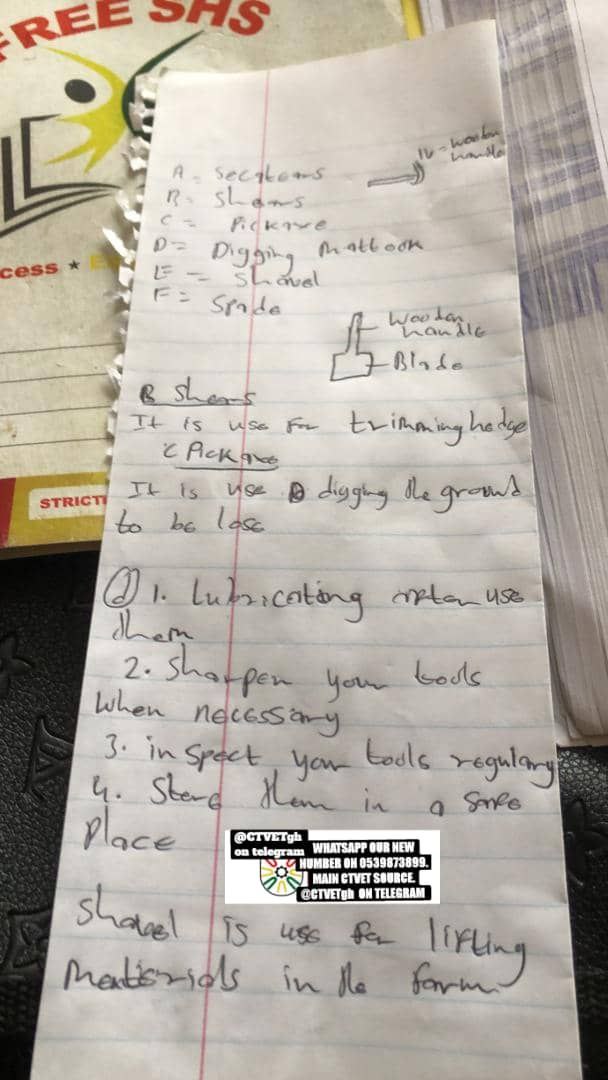 FREE SHS
cess ★
STRICT
A - Secateurs
IV - wooden
handle
B - Shears
C = Pickaxe
D = Digging mattock
E = Shovel
F = Spade
Wooden
handle
Blade
B Shears
It is use for trimming hedge
C Pickaxe
It is use digging the ground
to be lose
d 1. Lubricating after use
them
2. Sharpen your tools
when necessary
3. inspect your tools regulary
4. Store them in a safe
place
@CTVETgh
on telegram
WHATSAPP OUR NEW
NUMBER ON 0539873899.
MAIN CTVET SOURCE.
@CTVETgh ON TELEGRAM
Shovel is use for lifting
materials in the farm